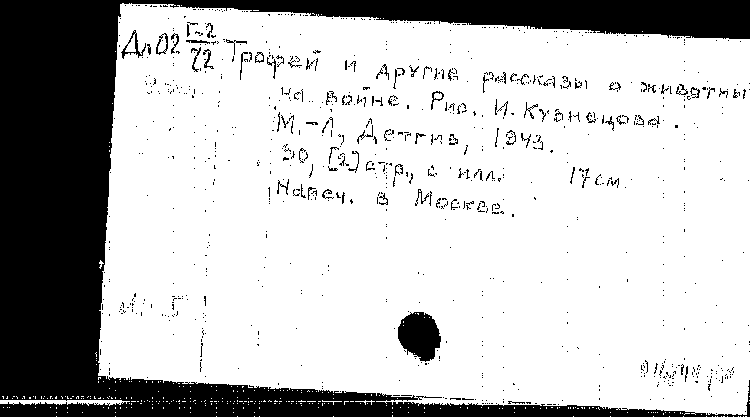 Дл02 Г-2/72 Трофей и другие рассказы о животны
на войне. Рис. И. Кузнецова.
М.-Л, Детгиз, 1943.
30, [2] стр., с илл. 17см
Напеч. в Москве.